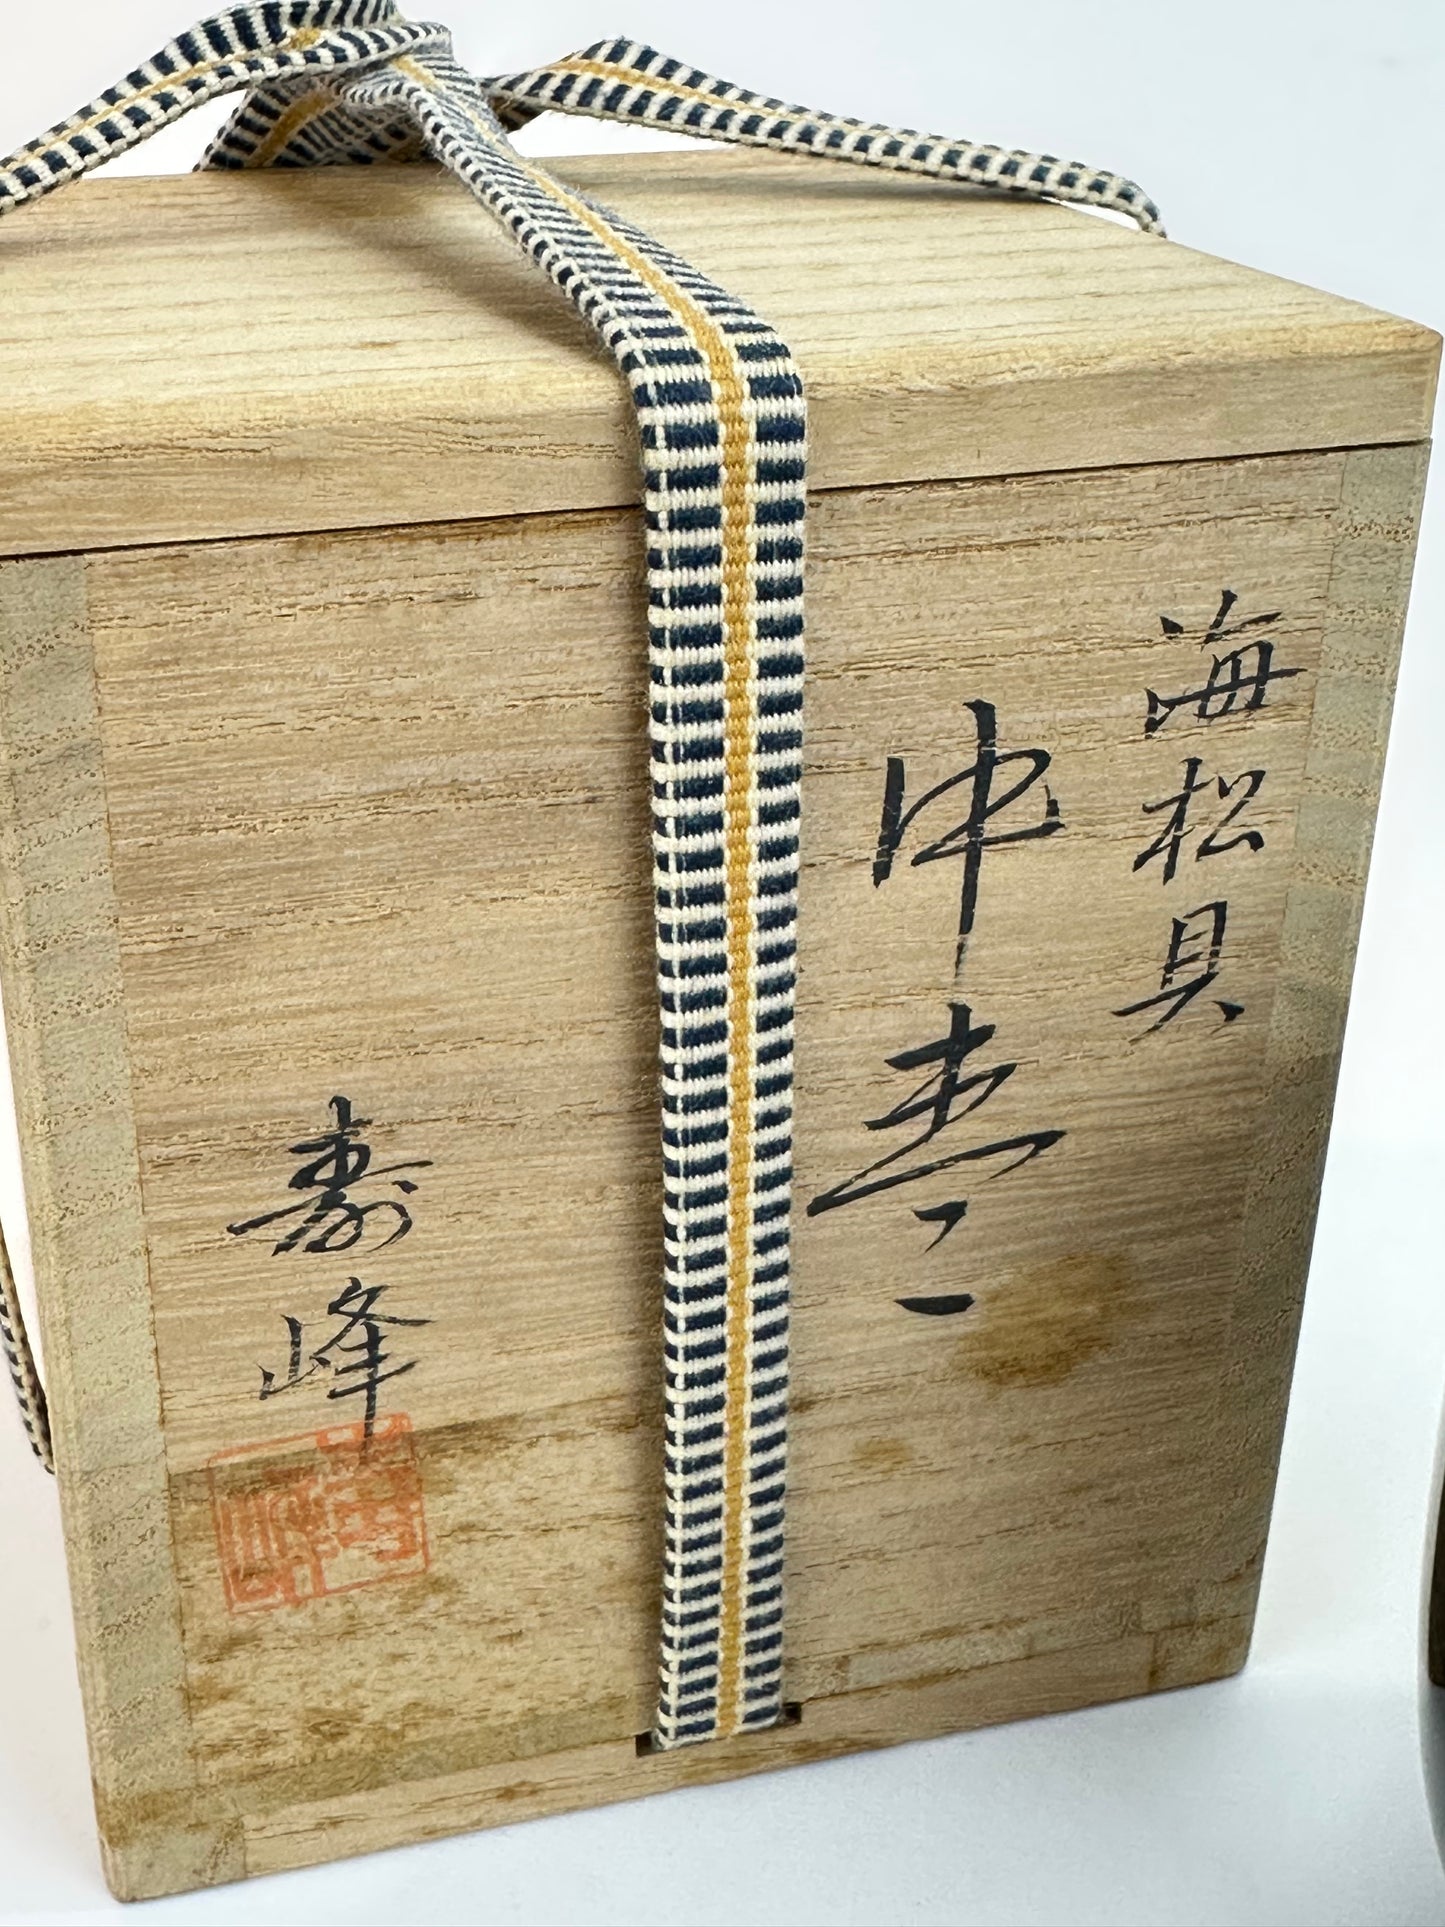 海松貝
中棗
寿峰